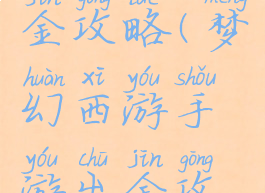 jīn gōng lüè mèng
金攻略(梦
huàn xī yóu shǒu
幻西游手
yóu chū jīn gōng
游出金攻